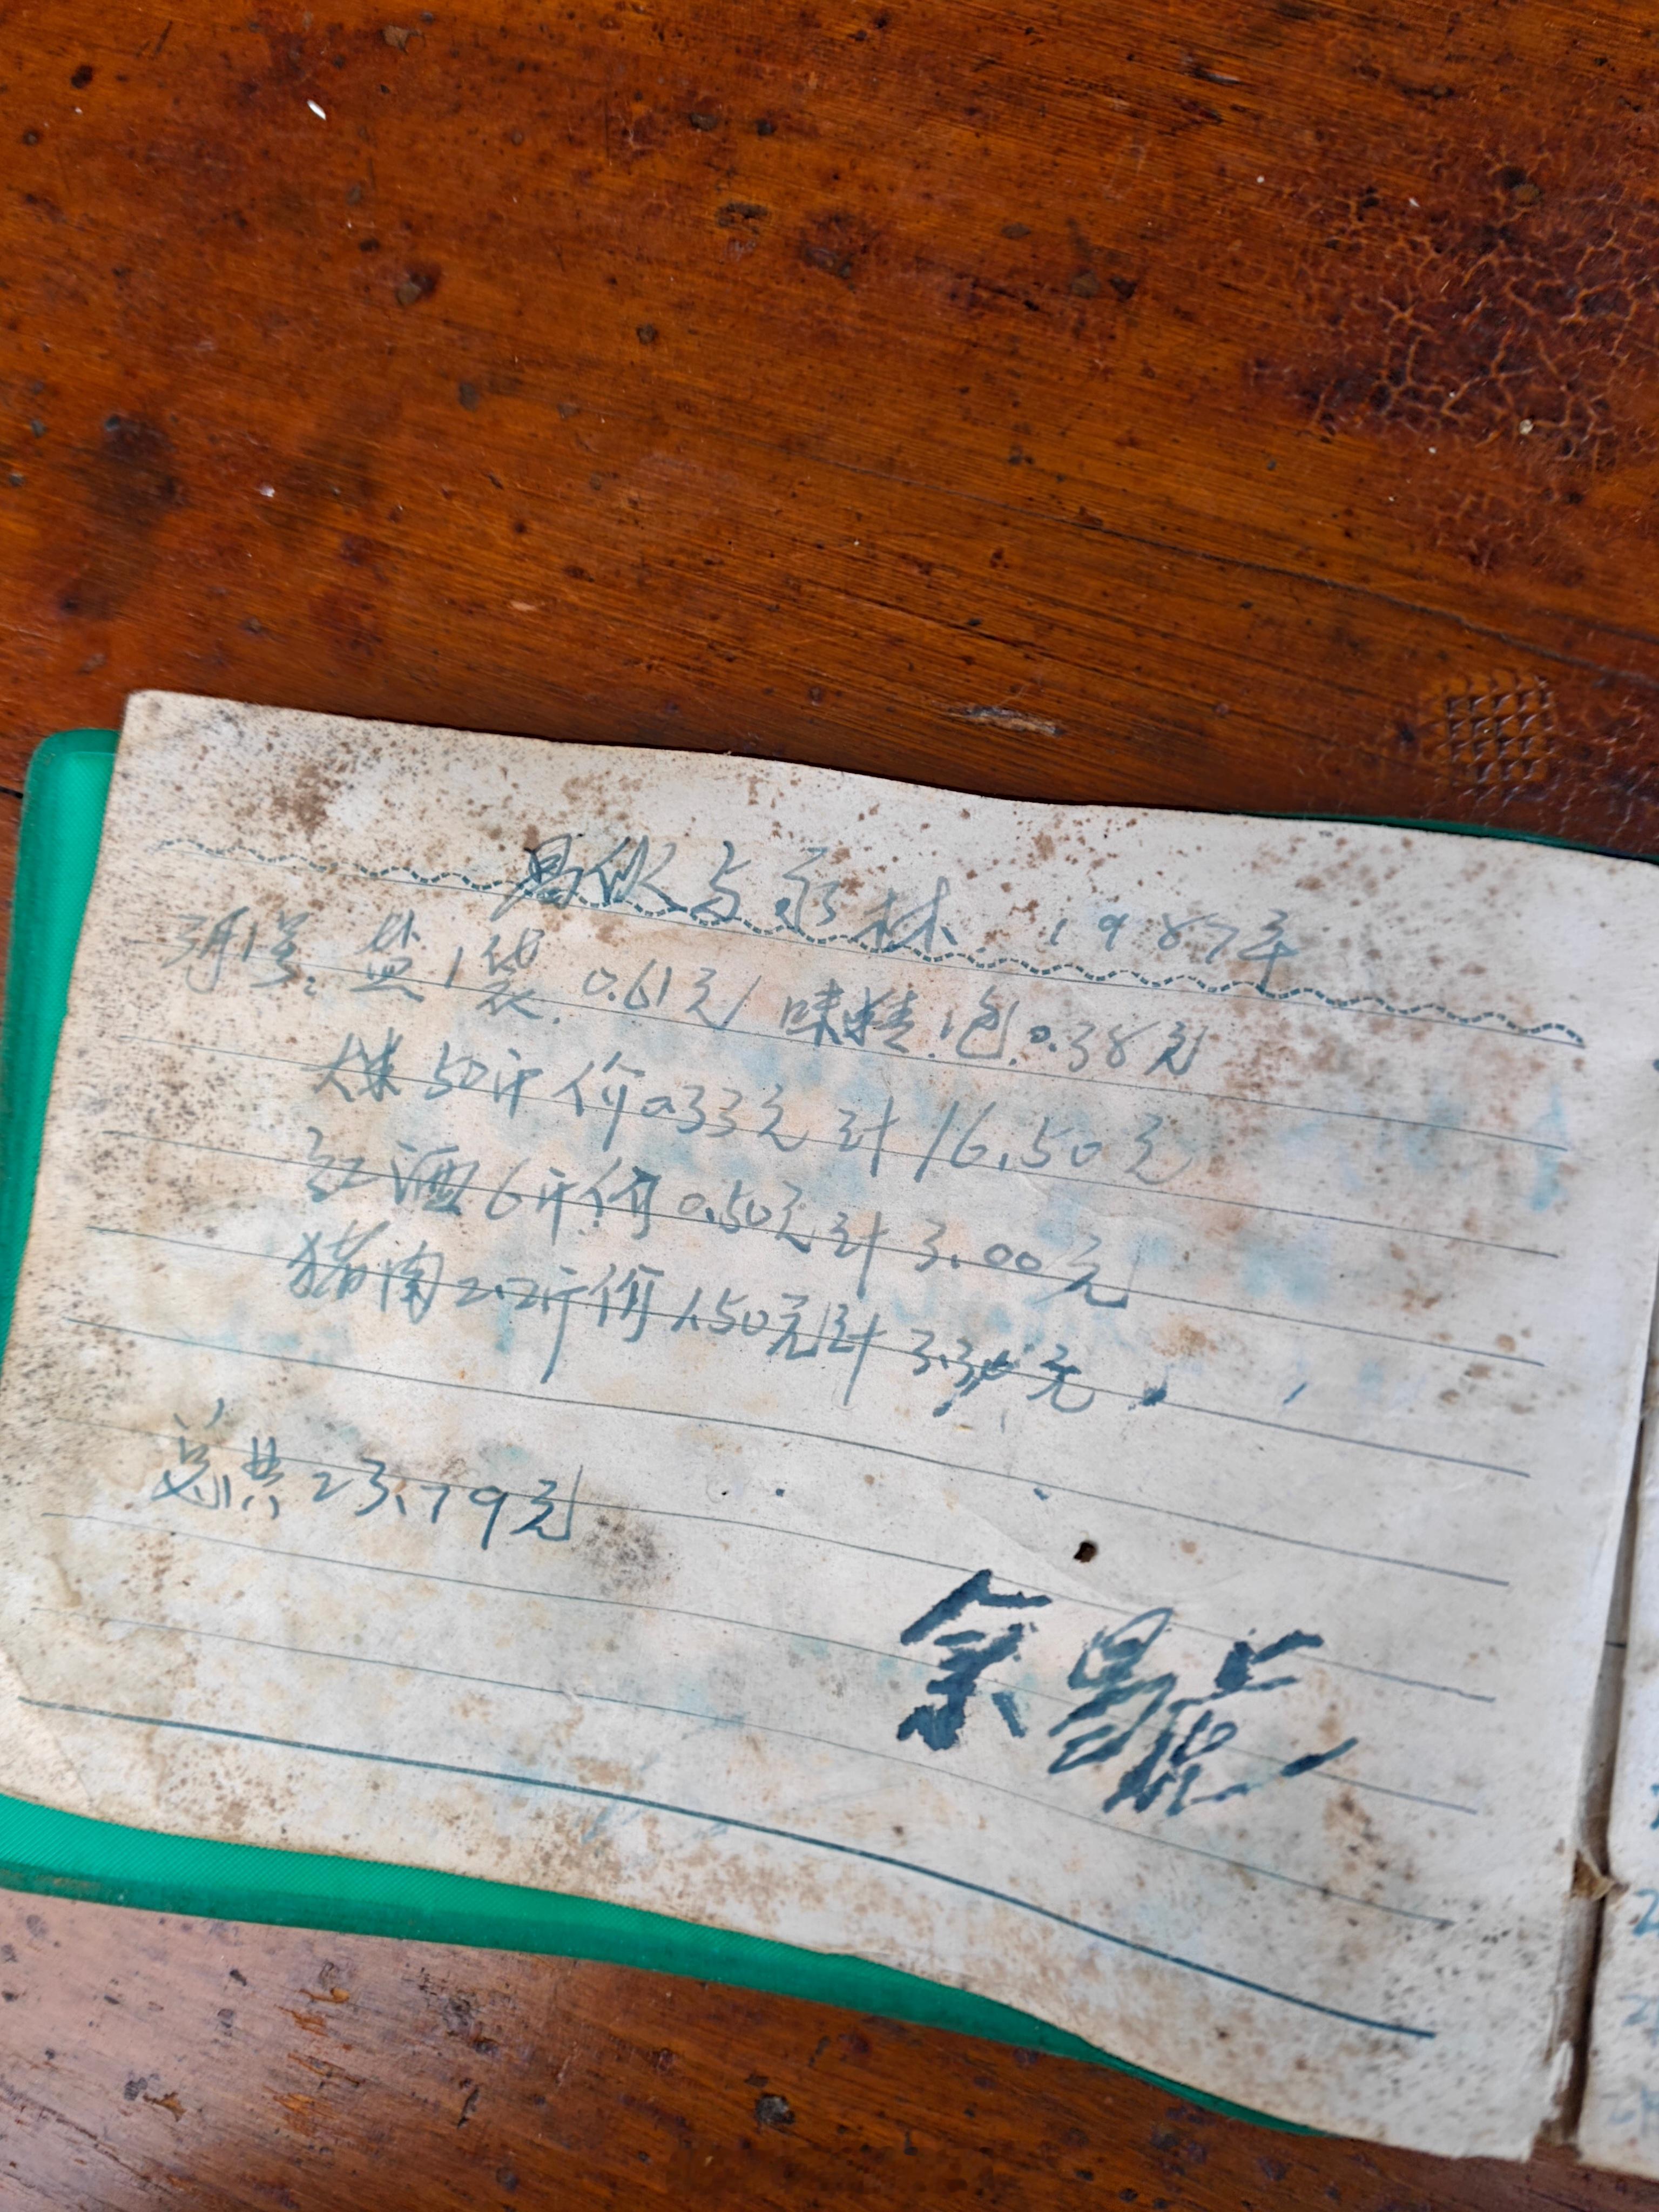 昌伙与永林 1987年
3月1号. 盐1袋. 0.61元/味精1包.0.38元
大米50斤价0.33元计16.50元
红酒6斤价0.50元计3.00元
猪肉2.2斤价1.50元计3.30元
总共23.79元
余昌